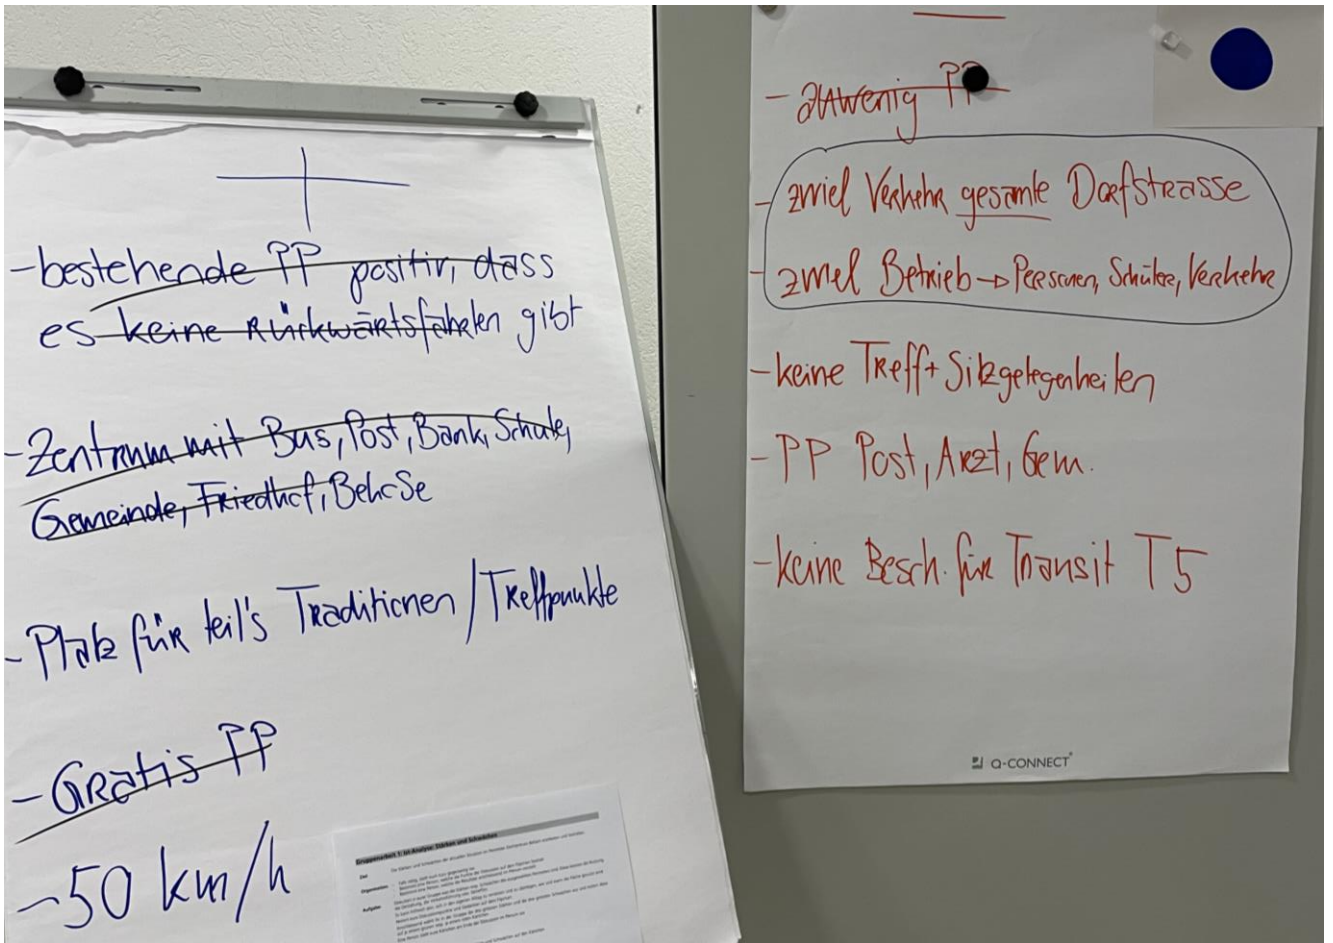 -bestehende PP positiv, dass
es keine Rückwärtsfahren gibt
-Zentrum mit Bus, Post, Bank, Schule,
Gemeinde, Friedhof, BehoSe
-Platz für teil's Traditionen / Treffpunkte
-Gratis PP
-50 km/h
Gruppenarbeit 1: Ist-Analyse: Stärken und Schwächen
Ziel
Organisation:
Aufgabe:
- zuwenig PP
- zuviel Verkehr gesamte Dorfstrasse
- zuviel Betrieb → Personen, Schüler, Verkehr
- keine Treff + Sitzgelegenheiten
- PP Post, Arzt, Gem.
- keine Besch. für Transit T5
Q-CONNECT